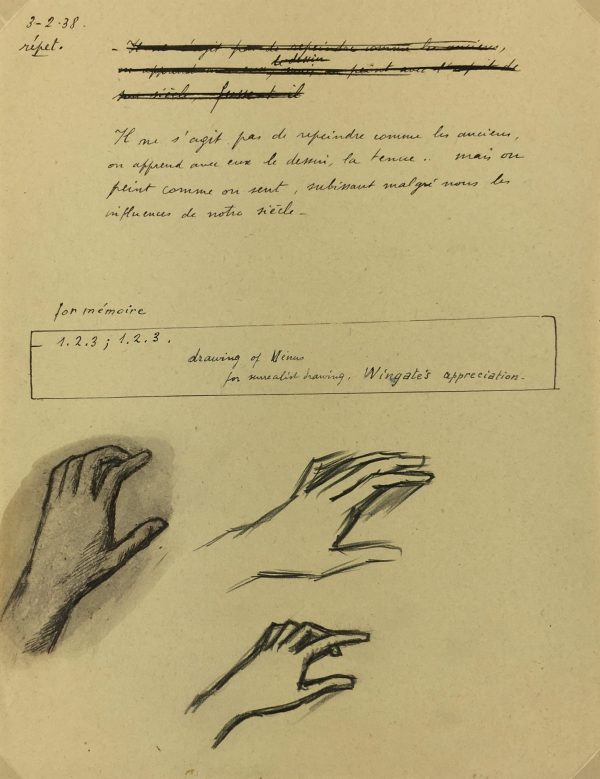 3-2-38.
répet.
- Il ne s'agit pas de repeindre comme les anciens,
le dessin
on apprend avec eux, mais on peint avec l'esprit de
son siècle, fusse-t-il
Il ne s'agit pas de repeindre comme les anciens,
on apprend avec eux le dessin, la tenue .. mais on
peint comme on sent, subissant malgré nous les
influences de notre siècle -
for mémoire
1.2.3 ; 1.2.3.
drawing of Vénus
for surrealist drawing. Wingate's appreciation.